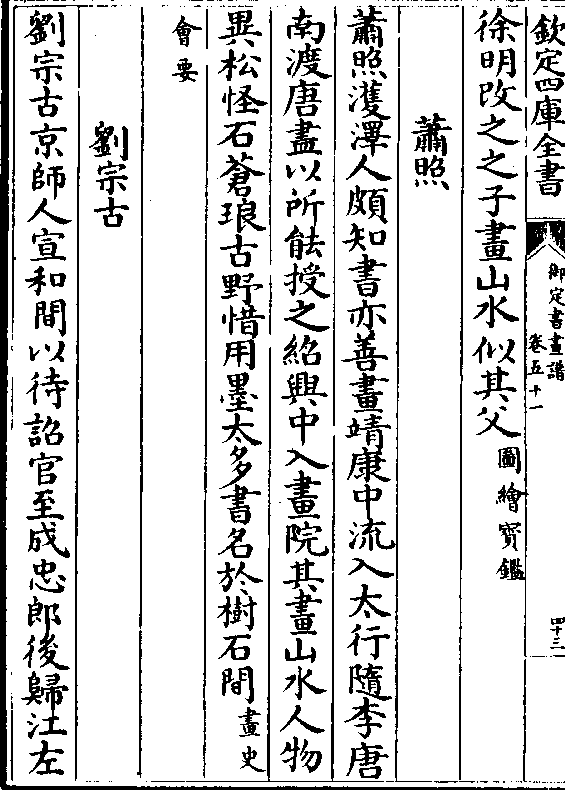 欽定四庫全書
御定書畫譜
卷五十一
四十三
徐明改之之子畫山水似其父圖繪寳鑑
蕭照
蕭照濩澤人頗知書亦善畫靖康中流入太行隨李唐
南渡唐盡以所能授之紹興中入畫院其畫山水人物
異松怪石蒼琅古野惜用墨太多書名於樹石間畫史
會要
劉宗古
劉宗古京師人宣和間以待詔官至成忠郎後歸江左